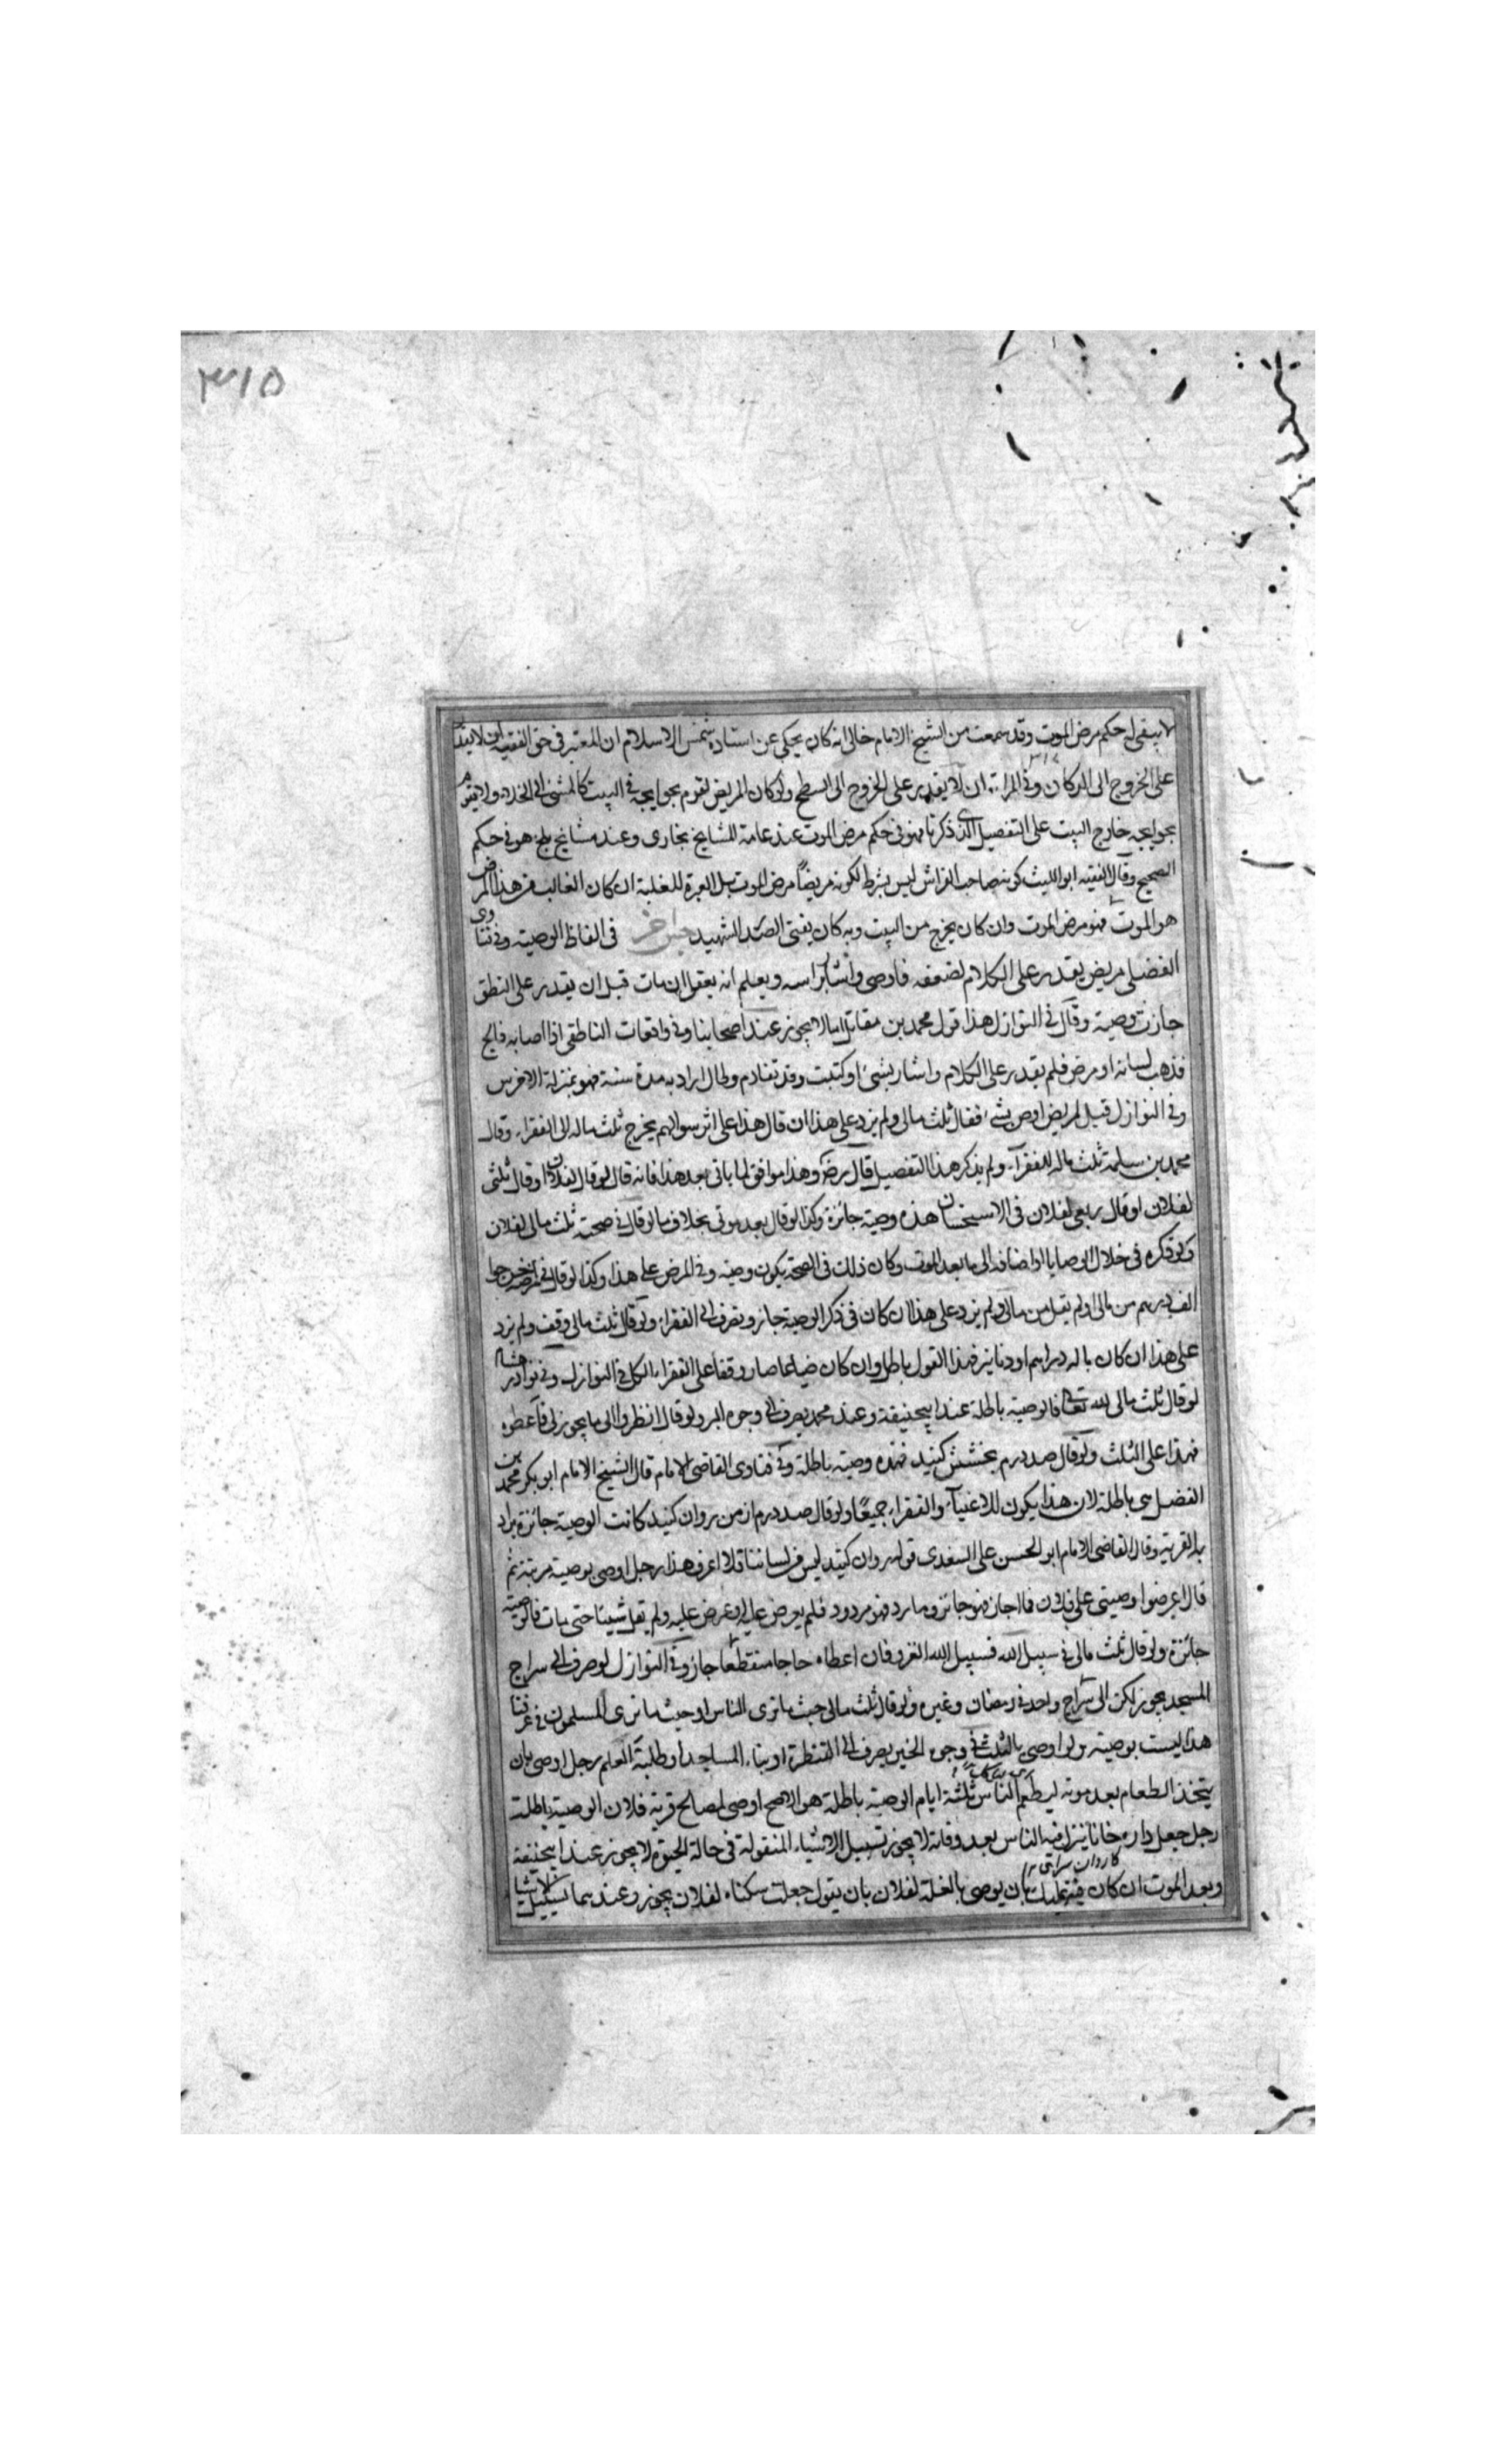 ٣١٥
لا يبقى له حكم مرض الموت وقد سمعت من الشيخ الامام خالى انه كان يحكى عن استاده شمس الاسلام ان المعتبر فى حق الفقيه ان لا يقدر
على الخروج الى الدكان وفى المراة ان لا يقدر على الخروج الى السطح ولو كان المريض يقوم بحوايجه فى البيت كالمشى الى الخلاء ولا يقوم
بحوايجه خارج البيت على التفصيل الذى ذكرنا فهو فى حكم مرض الموت عند عامة المشايخ بخارى وعند مشايخ بلخ هو فى حكم
الصحيح وقال الفقيه ابو الليث كونه صاحب الفراش ليس بشرط لكونه مريضاً مرض الموت بل العبرة للغلبة ان كان الغالب من هذا المرض
هو الموت فهو مرض الموت وان كان يخرج من البيت وبه كان يفتى الصدر الشهيد جنس اخر فى الفاظ الوصية وفى فتاوى
الفضلى مريض يقدر على الكلام لضعفه فاوصى واشار براسه ويعلم انه يعقل ان مات قبل ان يقدر على النطق
جازت وصيته وقال فى النوازل هذا قول محمد بن مقاتل اما لا يجوز عند اصحابنا وفى واقعات الناطقى اذا اصابه فالج
فذهب لسانه او مرض فلم يقدر على الكلام واشار بشئ او كتبت وقد تقادم وطال اراد به مدة سنة فهو بمنزلة الاخرس
وفى النوازل قيل لمريض اوص بشئ فقال ثلث مالى ولم يزد على هذا ان قال هذا على اثر سوالهم يخرج ثلث ماله الى الفقراء وقال
محمد بن سلمة ثلث ماله للفقرآء ولم يذكر هذا التفصيل قال رضه وهذا موافق لما ياتى بعد هذا فانه قال لو قال لفلان او قال ثلثى
لفلان او قال ربعى لفلان فى الاستحسان هذه وصية جائزة وكذا لو قال بعد موتى بخلاف ما لو قال فى صحته ثلث مالى لفلان
ولو ذكره فى خلال الوصايا او اضافه الى ما بعد الموت وكان ذلك فى الصحة يكون وصية وفى المرض على هذا وكذا لو قال فى مرضه اخرجوا
الف درهم من مالى او لم يقل من مالى ولم يزد على هذا ان كان فى ذكر الوصية جاز ويصرف الى الفقراء ولو قال ثلث مالى وقف ولم يزد
على هذا ان كان ماله دراهم او دنانير فهذا القول باطل وان كان ضياعا صار وقفا على الفقراء الكل فى النوازل وفى نوادر هشام
لو قال ثلث مالى لله تعالى فالوصية باطلة عند ابيحنيفة وعند محمد يصرف الى وجوه البر ولو قال انظروا الى ما يجوز لى فاعطوه
فهذا على الثلث ولو قال صد درم بخشش كنيد فهذه وصية باطلة وفى فتاوى القاضى الامام قال الشيخ الامام ابو بكر محمد بن
الفضل هى باطلة لان هذا يكون للاغنيآء والفقراء جميعًا ولو قال صد درم از من روان كنيد كانت الوصية جائزة يراد
به القربة وقال القاضى الامام ابو الحسن على السغدى قوله روان كنيد ليس من لساننا فلا اعرف هذا رجل اوصى بوصية مرتبة ثم
قال اعرضوا وصيتى على فلان فما اجاز فهو جائز وما رد فهو مردود فلم يعرض عليه او عرض عليه ولم يقل شيئا حتى مات فالوصية
جائزة ولو قال ثلث مالى فى سبيل الله فسبيل الله الغزو فان اعطاه حاجا منقطعا جاز وفى النوازل لو صرف الى سراج
المسجد يجوز لكن الى سراج واحد فى رمضان وغيره ولو قال ثلث مالى حيث ما ترى الناس او حيث ما ترى المسلمون فى عرفنا
هذا ليست بوصية ولو اوصى بالثلث فى وجوه الخير يصرف الى القنطرة او بناء المساجد او طلبة العلم رجل اوصى بان
يتخذ الطعام بعد موته ليطعم الناس ثلثة ايام الوصية باطلة هو الاصح اوصى لمصالح قرية فلان الوصية باطلة
رجل جعل داره خانا ينزل فيه الناس بعد وفاته لا يجوز تسبيل الاشياء المنقولة فى حالة الحيوة لا يجوز عند ابيحنيفة
كاروان سراى
وبعد الموت ان كان فيه تمليك بان يوصى بالغلة لفلان بان يقول جعلت سكناه لفلان يجوز وعندهما تسبيل الاشيا